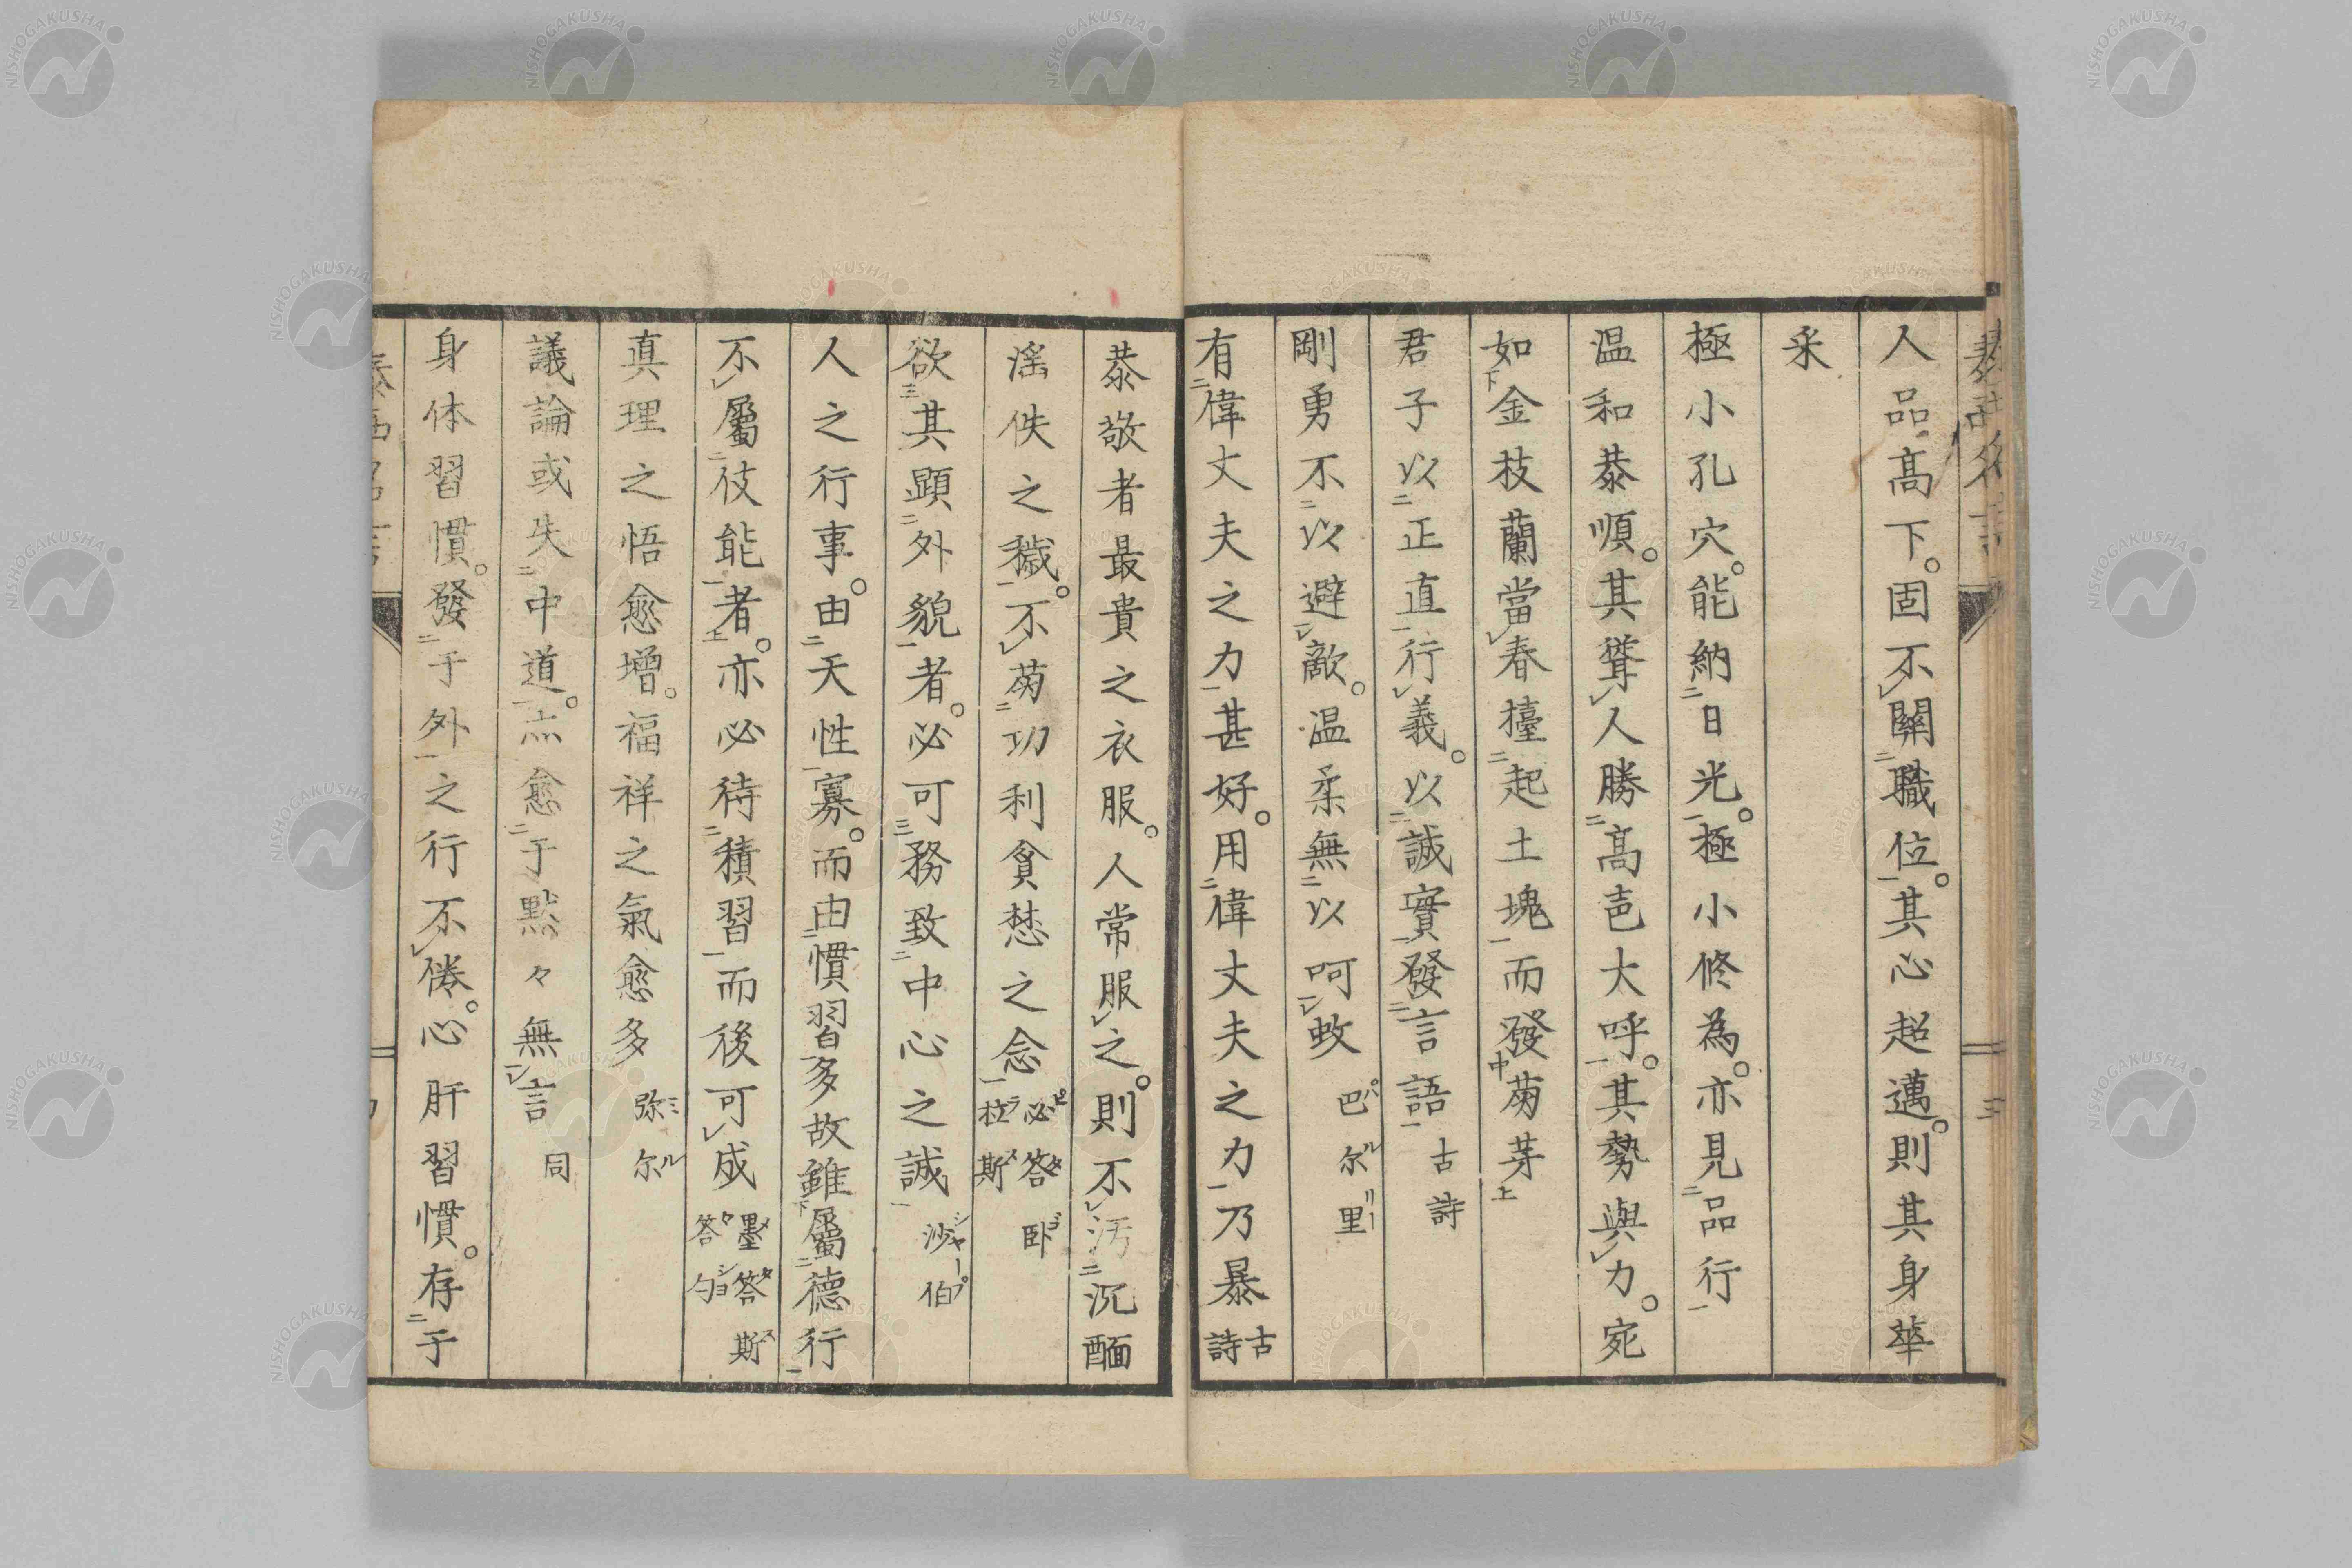 人品高下。固不關職位。其心超邁。則其身華
采
極小孔穴。能納日光。極小修為。亦見品行
温和恭順。其聳人勝高声大呼。其勢與力。宛
如金枝蘭當春擡起土塊而發萌芽
君子以正直行義。以誠實發言語 古詩
剛勇不以避敵。温柔無以呵蚊 巴尔里
有偉丈夫之力甚好。用偉丈夫之力乃暴 古詩
恭敬者最貴之衣服。人常服之。則不汚沉酾
滛佚之穢。不萠功利貪惏之念 必答臥拉斯
欲其顕外貌者。必可務致中心之誠 沙伯
人之行事。由天性寡。而由慣習多故雖屬德行
不屬伎能者。亦必待積習而後可成 墨答斯答勺
真理之悟愈增。福祥之氣愈多 弥尔
議論或失中道。愈于黙々無言 同
身体習慣。發于外之行不倦。心肝習慣。存于
NISHOGAKUSHA